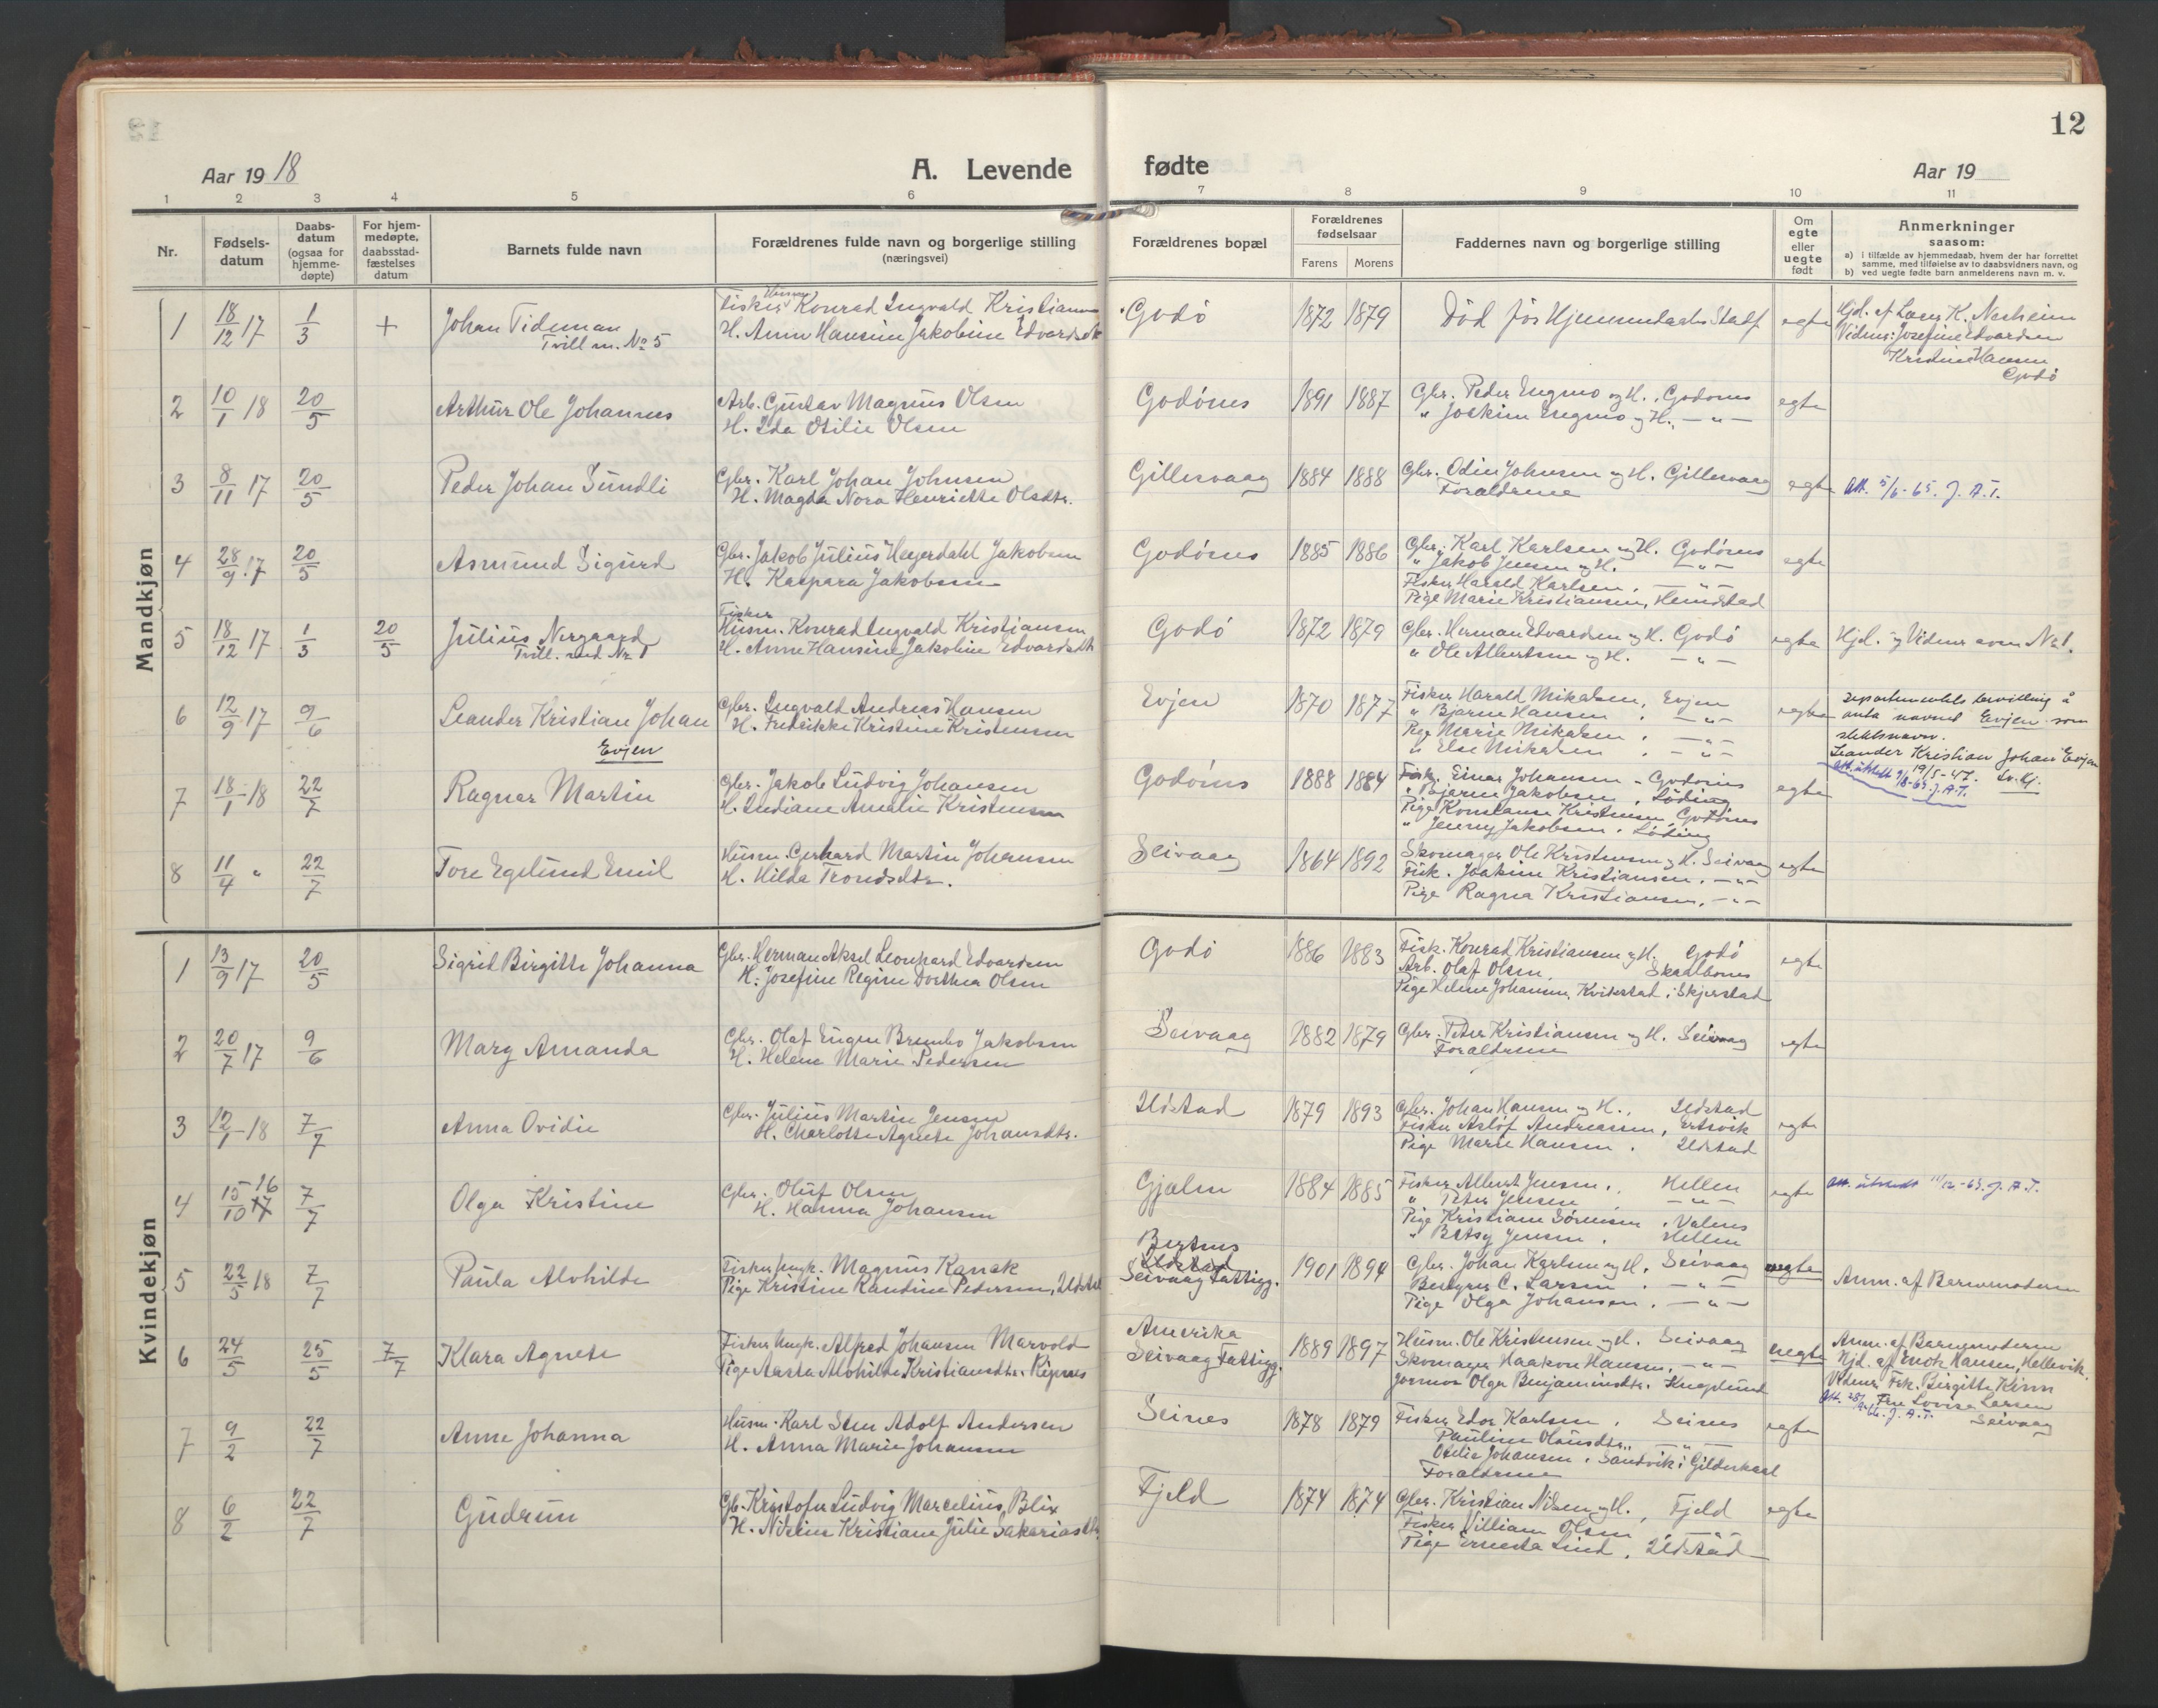 12
Aar 1918
A. Levende fødte
Aar 19
1 2 3 4 5 6 7 8 9 10 11
Nr.
Fødsels-datum
Daabs-datum (ogsaa for hjemme-døpte)
For hjem-medøpte, daabsstad-fæstelses datum
Barnets fulde navn
Forældrenes fulde navn og borgerlige stilling (næringsvei)
Forældrenes bopæl
Forældrenes fødselsaar
Farens Morens
Faddernes navn og borgerlige stilling
Om egte eller uegte født
Anmerkninger saasom:
a) i tilfælde av hjemmedaab, hvem der har forrettet samme, med tilføielse av to daabsvidners navn, og
b) ved uegte fødte barn anmelderens navn m. v.
Mandkjøn
1 18/12 17 1/3 +
Johan Tideman
Tvill m. No 5
Fisker Husm. Konrad Ingvald Kristiansen
H. Anne Hansine Jakobine Edvardsdt
Godø 1872 1879
Død før Hjemmedaabs Stadf
egte
Hjd. af Laer K. Nesheim
Vidner: Josefine Edvardsen
Kristine Hansen
Godø
2 10/1 18 20/5
Arthur Ole Johannes
Arb. Gustav Magnus Olsen
H. Ida Otilie Olsen
Godønes 1891 1887
Gbr. Peder Engmo og H., Godønes
" Joakim Engmo og H. — " —
egte
3 8/11 17 20/5
Peder Johan Sundli
Gbr. Karl Johan Johnsen
H. Magda Nora Henriette Olsdtr.
Gillesvaag 1884 1888
Gbr. Odin Johnsen og H. Gillesvaag
Forældrene
egte
Att. 5/6-65. J. A. T.
4 28/9 17 20/5
Asmund Sigurd
Gbr. Jakob Julius Heyerdahl Jakobsen
H. Kaspara Jakobsen
Godønes 1885 1886
Gbr. Karl Karlsen og H. Godønes
" Jakob Jensen og H. — " —
Fisker Harald Karlsen, — " —
Pige Marie Kristiansen, Hemdstad
egte
5 18/12 17 1/3 20/5
Julius Nergaard
Tvill. med Nr 1
Fisker
Husm. Konrad Ingvald Kristiansen
H. Anne Hansine Jakobine Edvardsdt
Godø 1872 1879
Gbr. Herman Edvardsen og H. Godø
" Ole Albertsen og H. — " —
egte
Hjd. og Vidner som Nr 1.
6 12/9 17 9/6
Leander Kristian Johan
Evjen
Gbr. Ingvald Andreas Hansen
H. Fredrikke Kristine Kristensen
Evjen 1870 1877
Fisker Harald Mikalsen, Evjen
" Bjarne Hansen, — " —
Pige Marie Mikalsen, — " —
" Else Mikalsen, — " —
egte
Departementets bevilling å
anta navnet Evjen som
slektsnavn.
Leander Kristian Johan Evjen
19/5-47.
7 18/1 18 22/7
Ragnar Martin
Gbr. Jakob Ludvig Johansen
H. Indiane Amalie Kristensen
Godønes 1888 1884
Fisk. Einar Johansen - Godønes
" Bjarne Jakobsen, Løding
Pige Konstanse Kristensen, Godønes
" Jenny Jakobsen, Løding
egte
8 11/4 " 22/7
Tore Egelund Emil
Husm. Gerhard Martin Johansen
H. Hilda Trondsdtr.
Seivaag 1864 1892
Skomager Ole Kristensen og H. Seivaag
Fisk. Joakim Kristiansen, — " —
Pige Ragna Kristiansen, — " —
egte
Kvindekjøn
1 13/9 17 20/5
Sigrid Birgitte Johanna
Gbr. Herman Aksel Leonhard Edvardsen
H. Josefine Regine Dorthea Olsen
Godø 1886 1883
Fisk. Konrad Kristiansen og H. Godø
Arb. Olaf Olsen, Skaalbones
Pige Helene Johansen, Kvikstad i Skjerstad
egte
2 20/7 17 9/6
Marg Amanda
Gbr. Olaf Eugen Brembo Jakobsen
H. Helene Marie Pedersen
Seivaag 1882 1879
Gbr. Peter Kristiansen og H. Seivaag
Forældrene
egte
3 12/1 18 7/7
Anna Ovidie
Gbr. Julius Martin Jensen
H. Charlotte Agnete Johansdtr.
Ildstad 1879 1893
Gbr. Johan Hansen og H., Ildstad
Fisker Asløf Andreassen, Ertsvik
Pige Marie Hansen, Ildstad
egte
4 15/10 16 7/7
Olga Kristine
Gbr. Oluf Olsen
H. Hanna Johansen
Gjælen 1884 1885
Fisker Albert Jensen, Hellen
" Peter Jensen, — " —
Pige Kristiane Sørensen, Valnes
" Betsy Jensen, Hellen
egte
Att. utsendt 11/12-63. J. A. T.
5 22/5 18 7/7
Paula Alvhilde
Fisker Ungk. Magnus Kanak
Pige Kristine Randine Pedersen, Ildstad
Bertnes
Ildstad
Seivaag Fattigg. 1901 1894
Gbr. Johan Karlsen og H. Seivaag
Bestyrer C. Larsen, — " —
Pige Olga Johansen, — " —
uegte
Anm. af Barnemoderen
6 24/5 25/5 7/7
Klara Agnete
Fisker Ungk. Alfred Johansen Marvold
Pige Aasta Alvhilde Kristiansdtr. Ripnes
Amerika
Seivaag Fattigg. 1889 1897
Husm. Ole Kristensen og H. Seivaag
Skomager Haakon Hansen, — " —
Jormor Olga Benjaminsdtr. Knaplund
uegte
Anm. af Barnemoderen
Hjd. af Enok Hansen, Hellevik.
Vidner Frk. Birgitte Kinn
Fru Lovise Larsen
Seivaag
7 9/2 22/7
Anne Johanna
Husm. Karl Sten Adolf Andersen
H. Anna Marie Johansen
Seines 1878 1879
Fisker Edor Karlsen, Seines
Pauline Olausdtr., — " —
Otilie Johansen, Sandvik i Gildeskaal
Forældrene
egte
8 6/2 22/7
Gudrun
Gb. Kristofer Ludvig Marcelius Blix
H. Nikline Kristiane Julie Sakariasdtr.
Fjeld 1874 1874
Gbr. Kristian Nilsen og H., Fjeld
Fisker Villiam Olsen — " —
Pige Ernesta Lind, Ildstad
egte